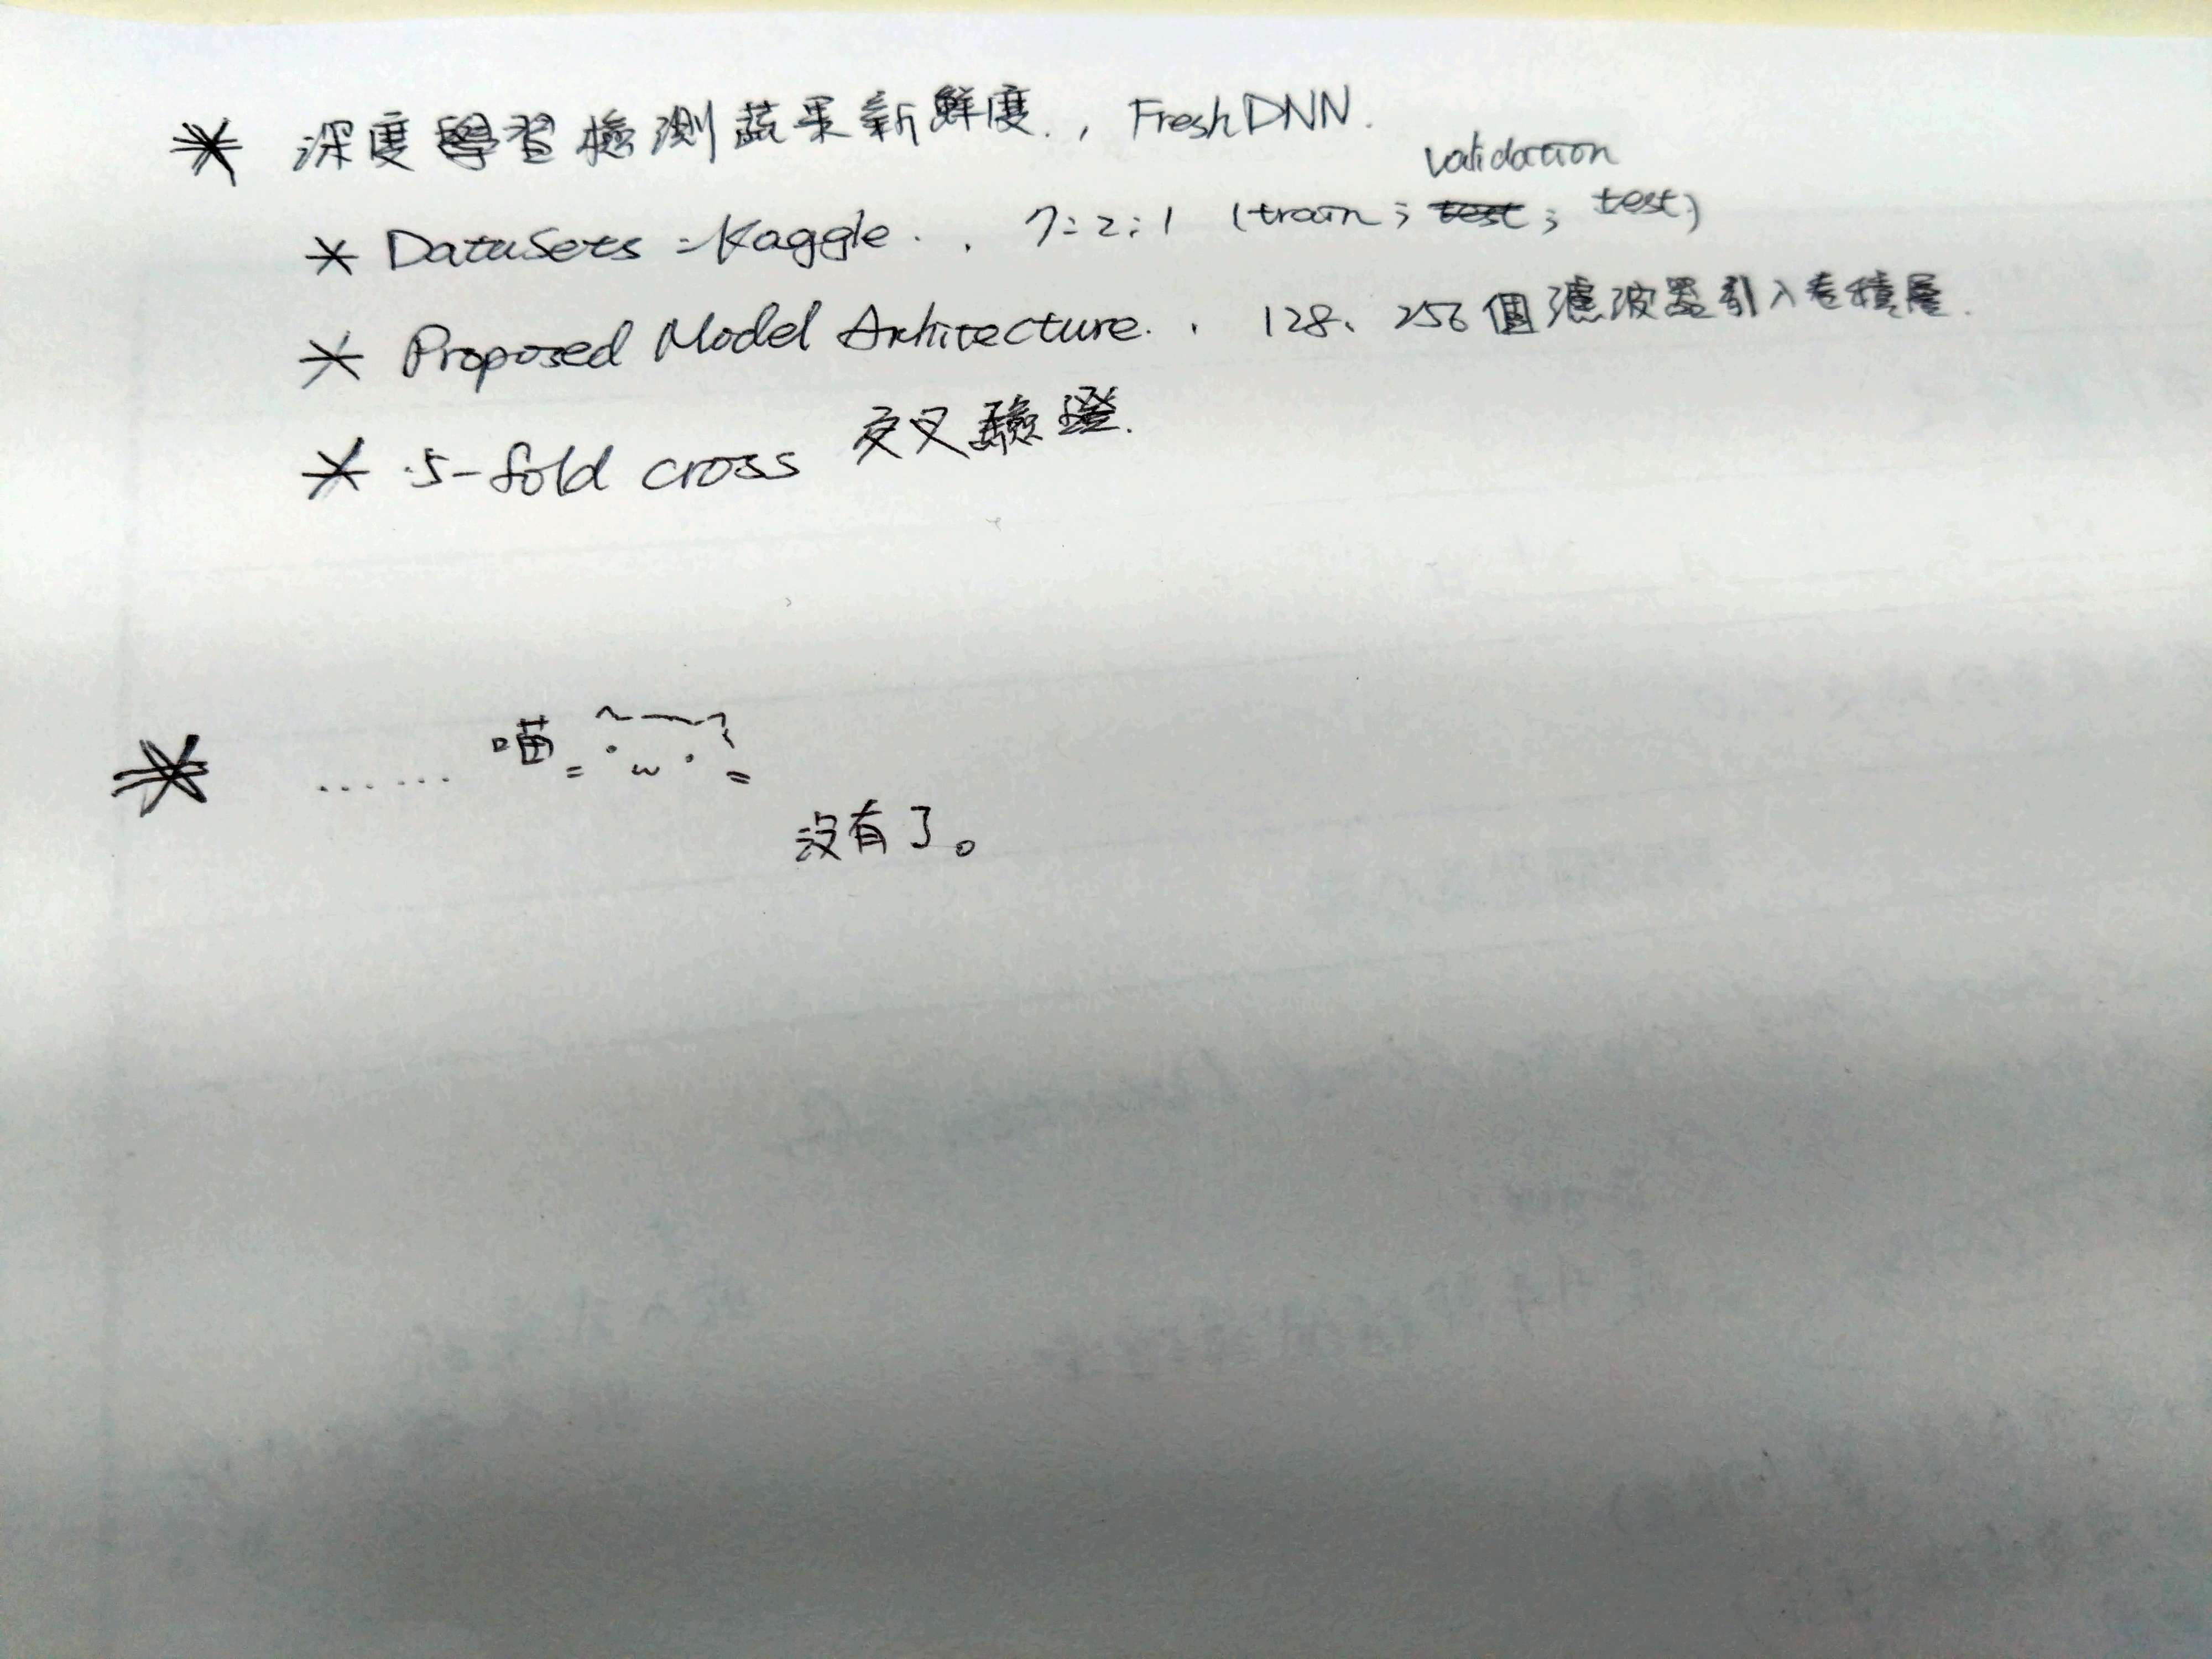 * 深度學習檢測蔬果新鮮度., FreshDNN.
validation
* Datasets = Kaggle . . 7:2:1 (train; test; test)
* Proposed Model Arhitecture. . 128、256個濾波器引入卷積層.
* .5-fold cross 交叉驗證.
* ...... 喵 = ˙ω˙ =
沒有了。